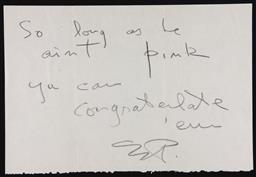 So long as he
aint pink
yu can
congratulate
'em
EP.